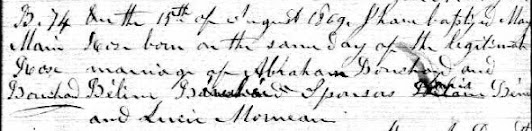 B. 74 On the 15th of August 1869 I have baptized Mary
Marie Rose born on the same day of the legitimate
Rose marriage of Abraham Bouchard and
Bouchard Béline Bouchard Sponsors
and Lucie Morneau